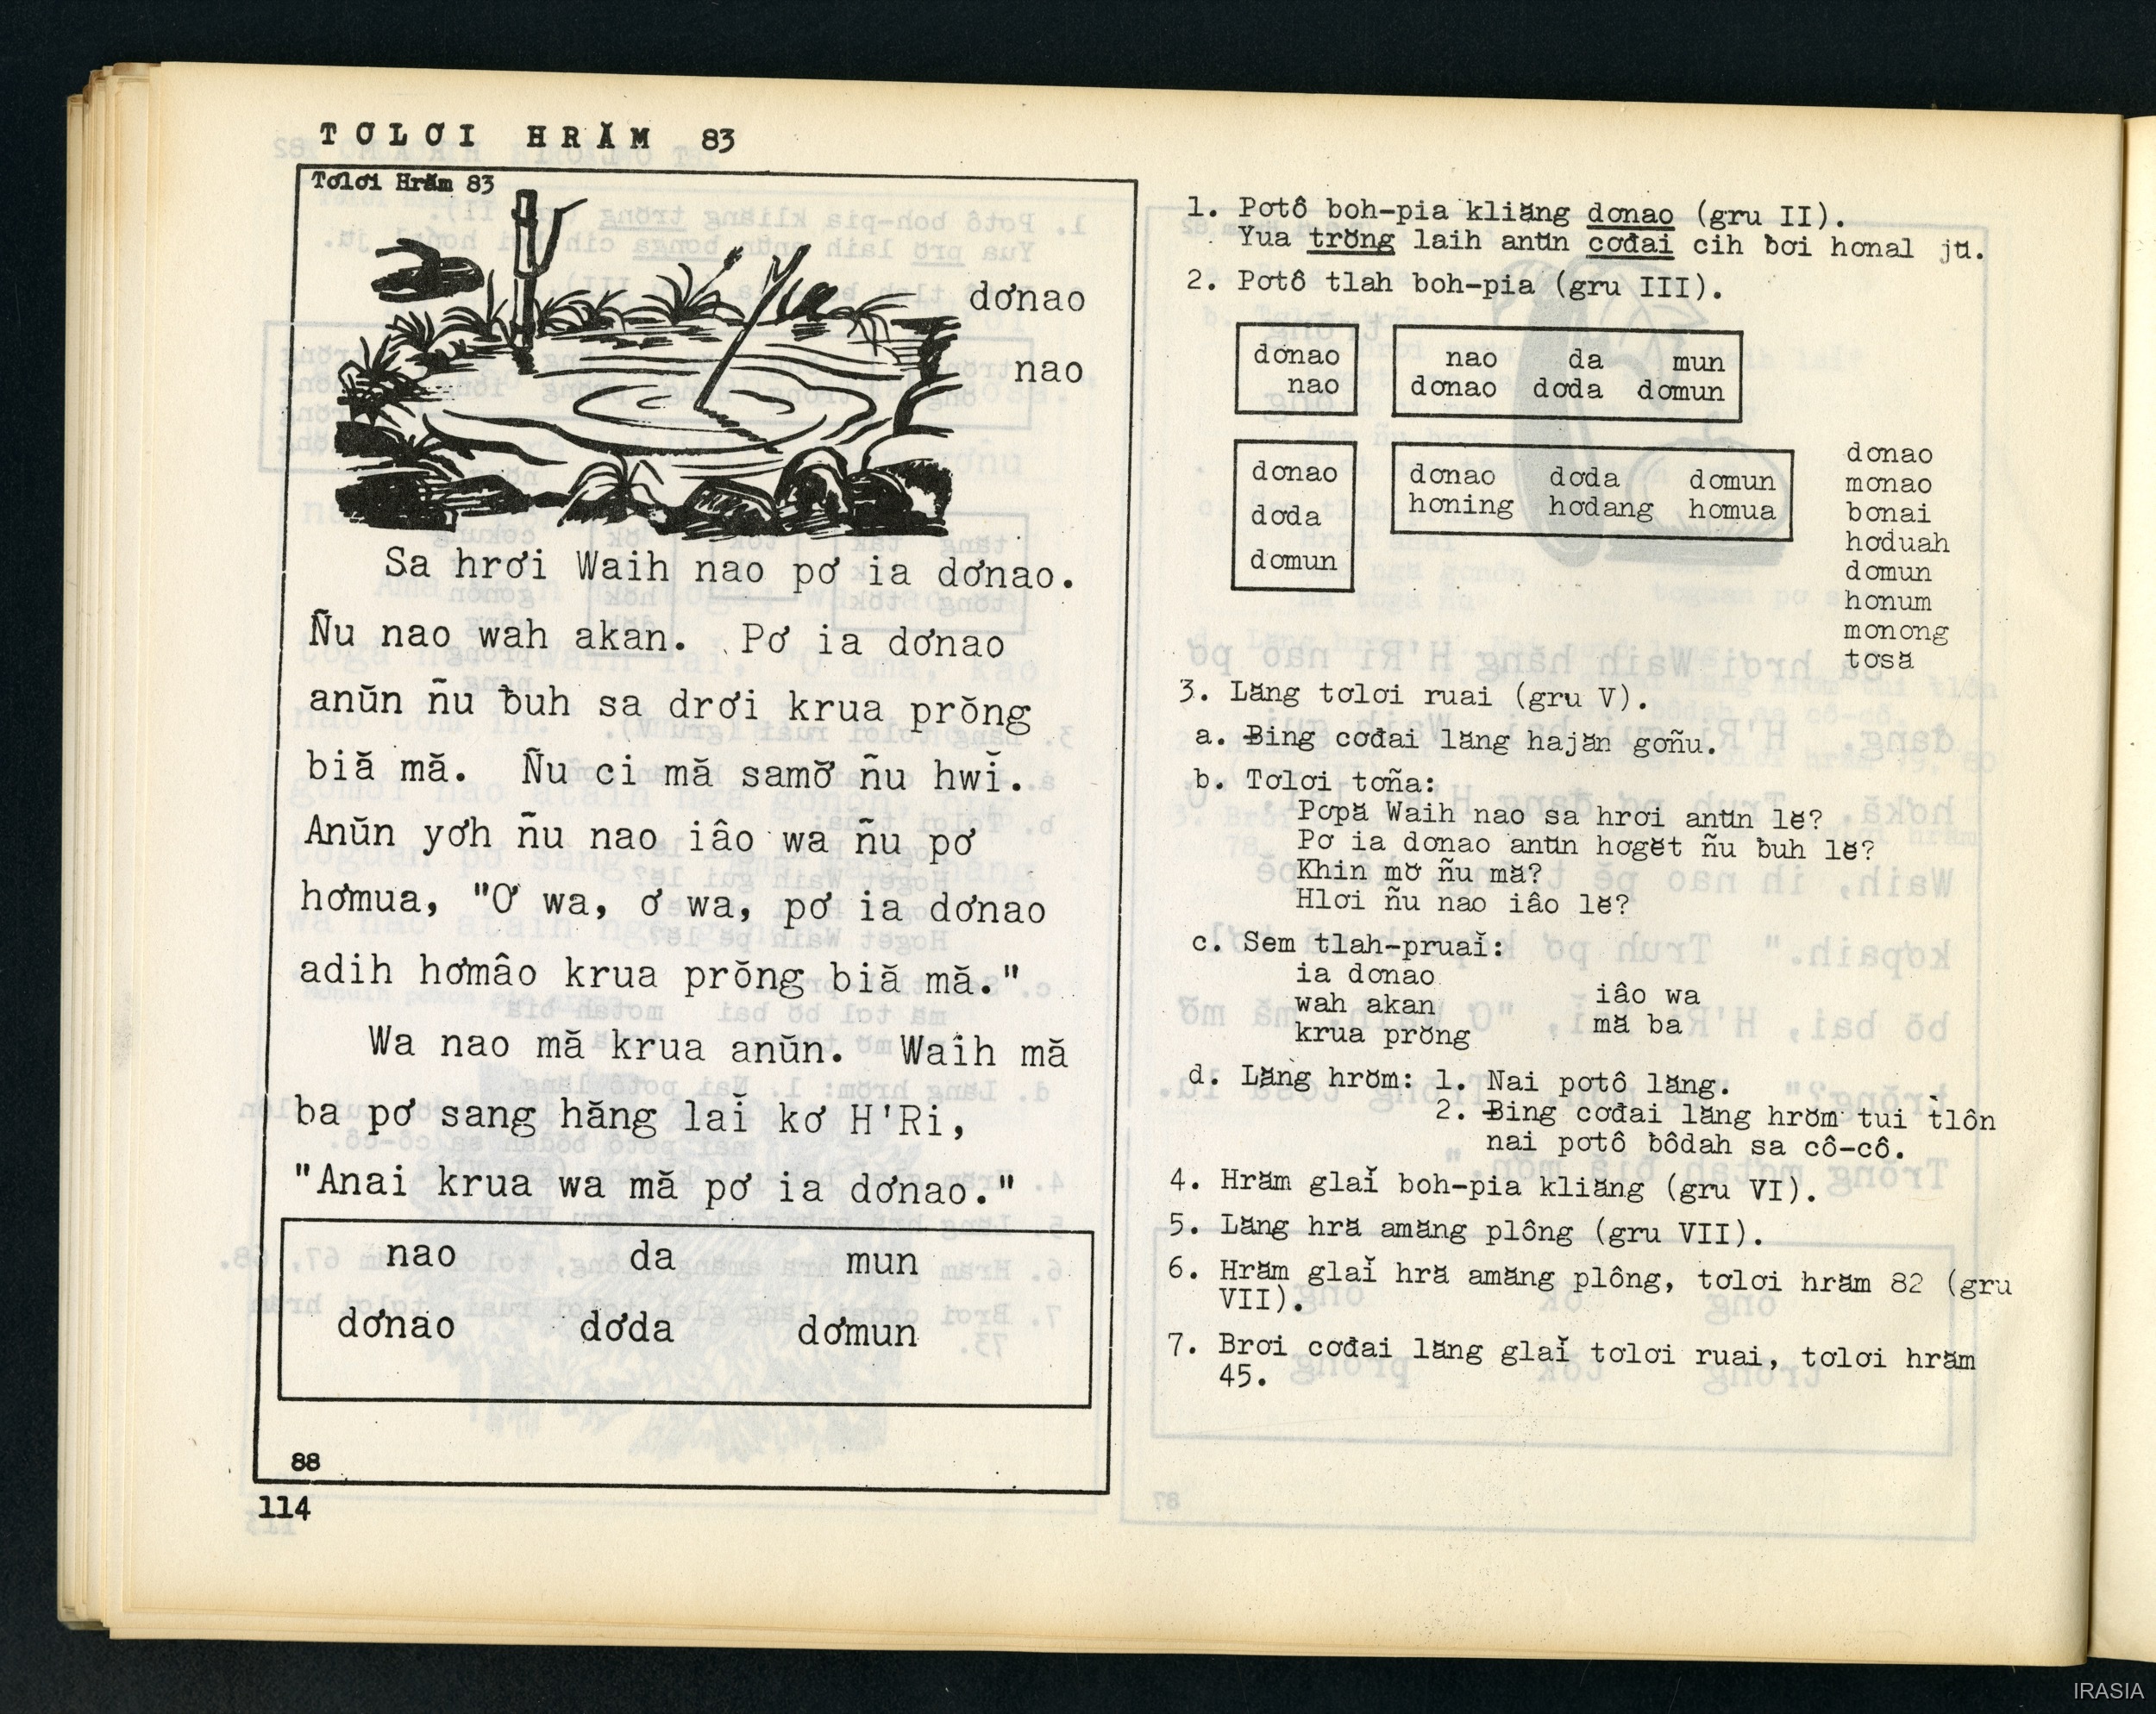 TƠLƠI HRĂM 83
Tơlơi Hrăm 83
dơnao
nao
Sa hrơi Waih nao pơ ia dơnao.
Ñu nao wah akan. Pơ ia dơnao
anŭn ñu ƀuh sa drơi krua prŏng
biă mă. Ñu ci mă samơ̆ ñu hwĭ.
Anŭn yơh ñu nao iâo wa ñu pơ
hơmua, "Ơ wa, ơ wa, pơ ia dơnao
adih hơmâo krua prŏng biă mă."
Wa nao mă krua anŭn. Waih mă
ba pơ sang hăng laĭ kơ H'Ri,
"Anai krua wa mă pơ ia dơnao."
nao da mun
dơnao dơda dơmun
88
114
1. Pơtô boh-pia kliăng dơnao (gru II).
Yua trŏng laih anŭn cơđai cih ƀơi hơnal jŭ.
2. Pơtô tlah boh-pia (gru III).
dơnao
nao
nao da mun
dơnao dơda dơmun
dơnao
dơda
dơmun
dơnao dơda dơmun
hơning hơdang hơmua
dơnao
mơnao
bơnai
hơduah
dơmun
hơnum
mơnong
tơsă
3. Lăng tơlơi ruai (gru V).
a. Ƀing cơđai lăng hajăn gơñu.
b. Tơlơi tơña:
Pơpă Waih nao sa hrơi anŭn lĕ?
Pơ ia dơnao anŭn hơgĕt ñu ƀuh lĕ?
Khin mơ̆ ñu mă?
Hlơi ñu nao iâo lĕ?
c. Sem tlah-pruaĭ:
ia dơnao
wah akan
krua prŏng
iâo wa
mă ba
d. Lăng hrŏm: 1. Nai pơtô lăng.
2. Ƀing cơđai lăng hrŏm tui tlôn
nai pơtô ƀôdah sa cô-cô.
4. Hrăm glaĭ boh-pia kliăng (gru VI).
5. Lăng hră amăng plông (gru VII).
6. Hrăm glaĭ hră amăng plông, tơlơi hrăm 82 (gru
VII).
7. Brơi cơđai lăng glaĭ tơlơi ruai, tơlơi hrăm
45.
IRASIA